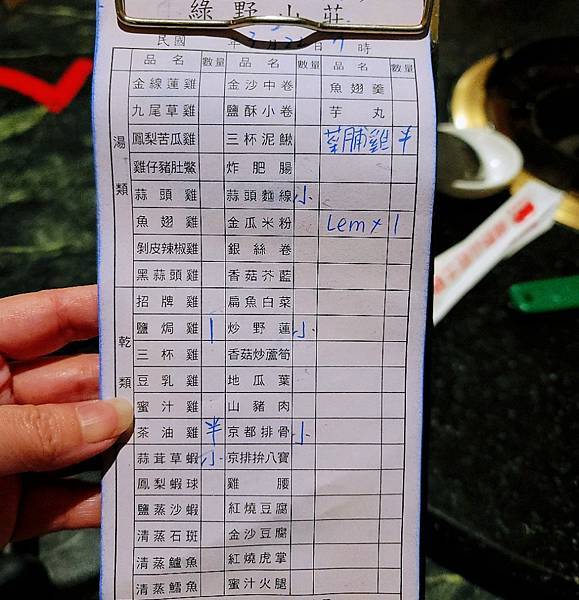 綠野山莊
民國 年3月22日 時
品名 數量 品名 數量 品名 數量
湯類
金線蓮雞 金沙中卷 魚翅羹
九尾草雞 鹽酥小卷 芋丸
鳳梨苦瓜雞 三杯泥鰍 菜脯雞 半
雞仔豬肚鱉 炸肥腸
蒜頭雞 蒜頭麵線 小
魚翅雞 金瓜米粉 Lemx 1
剝皮辣椒雞 銀絲卷
黑蒜頭雞 香菇芥藍
乾類
招牌雞 扁魚白菜
鹽焗雞 1 炒野蓮 小
三杯雞 香菇炒蘆筍
豆乳雞 地瓜葉
蜜汁雞 山豬肉
茶油雞 半 京都排骨 小
蒜茸草蝦 小 京排拚八寶
鳳梨蝦球 雞腰
鹽蒸沙蝦 紅燒豆腐
清蒸石斑 金沙豆腐
清蒸鱸魚 紅燒虎掌
清蒸鱈魚 蜜汁火腿